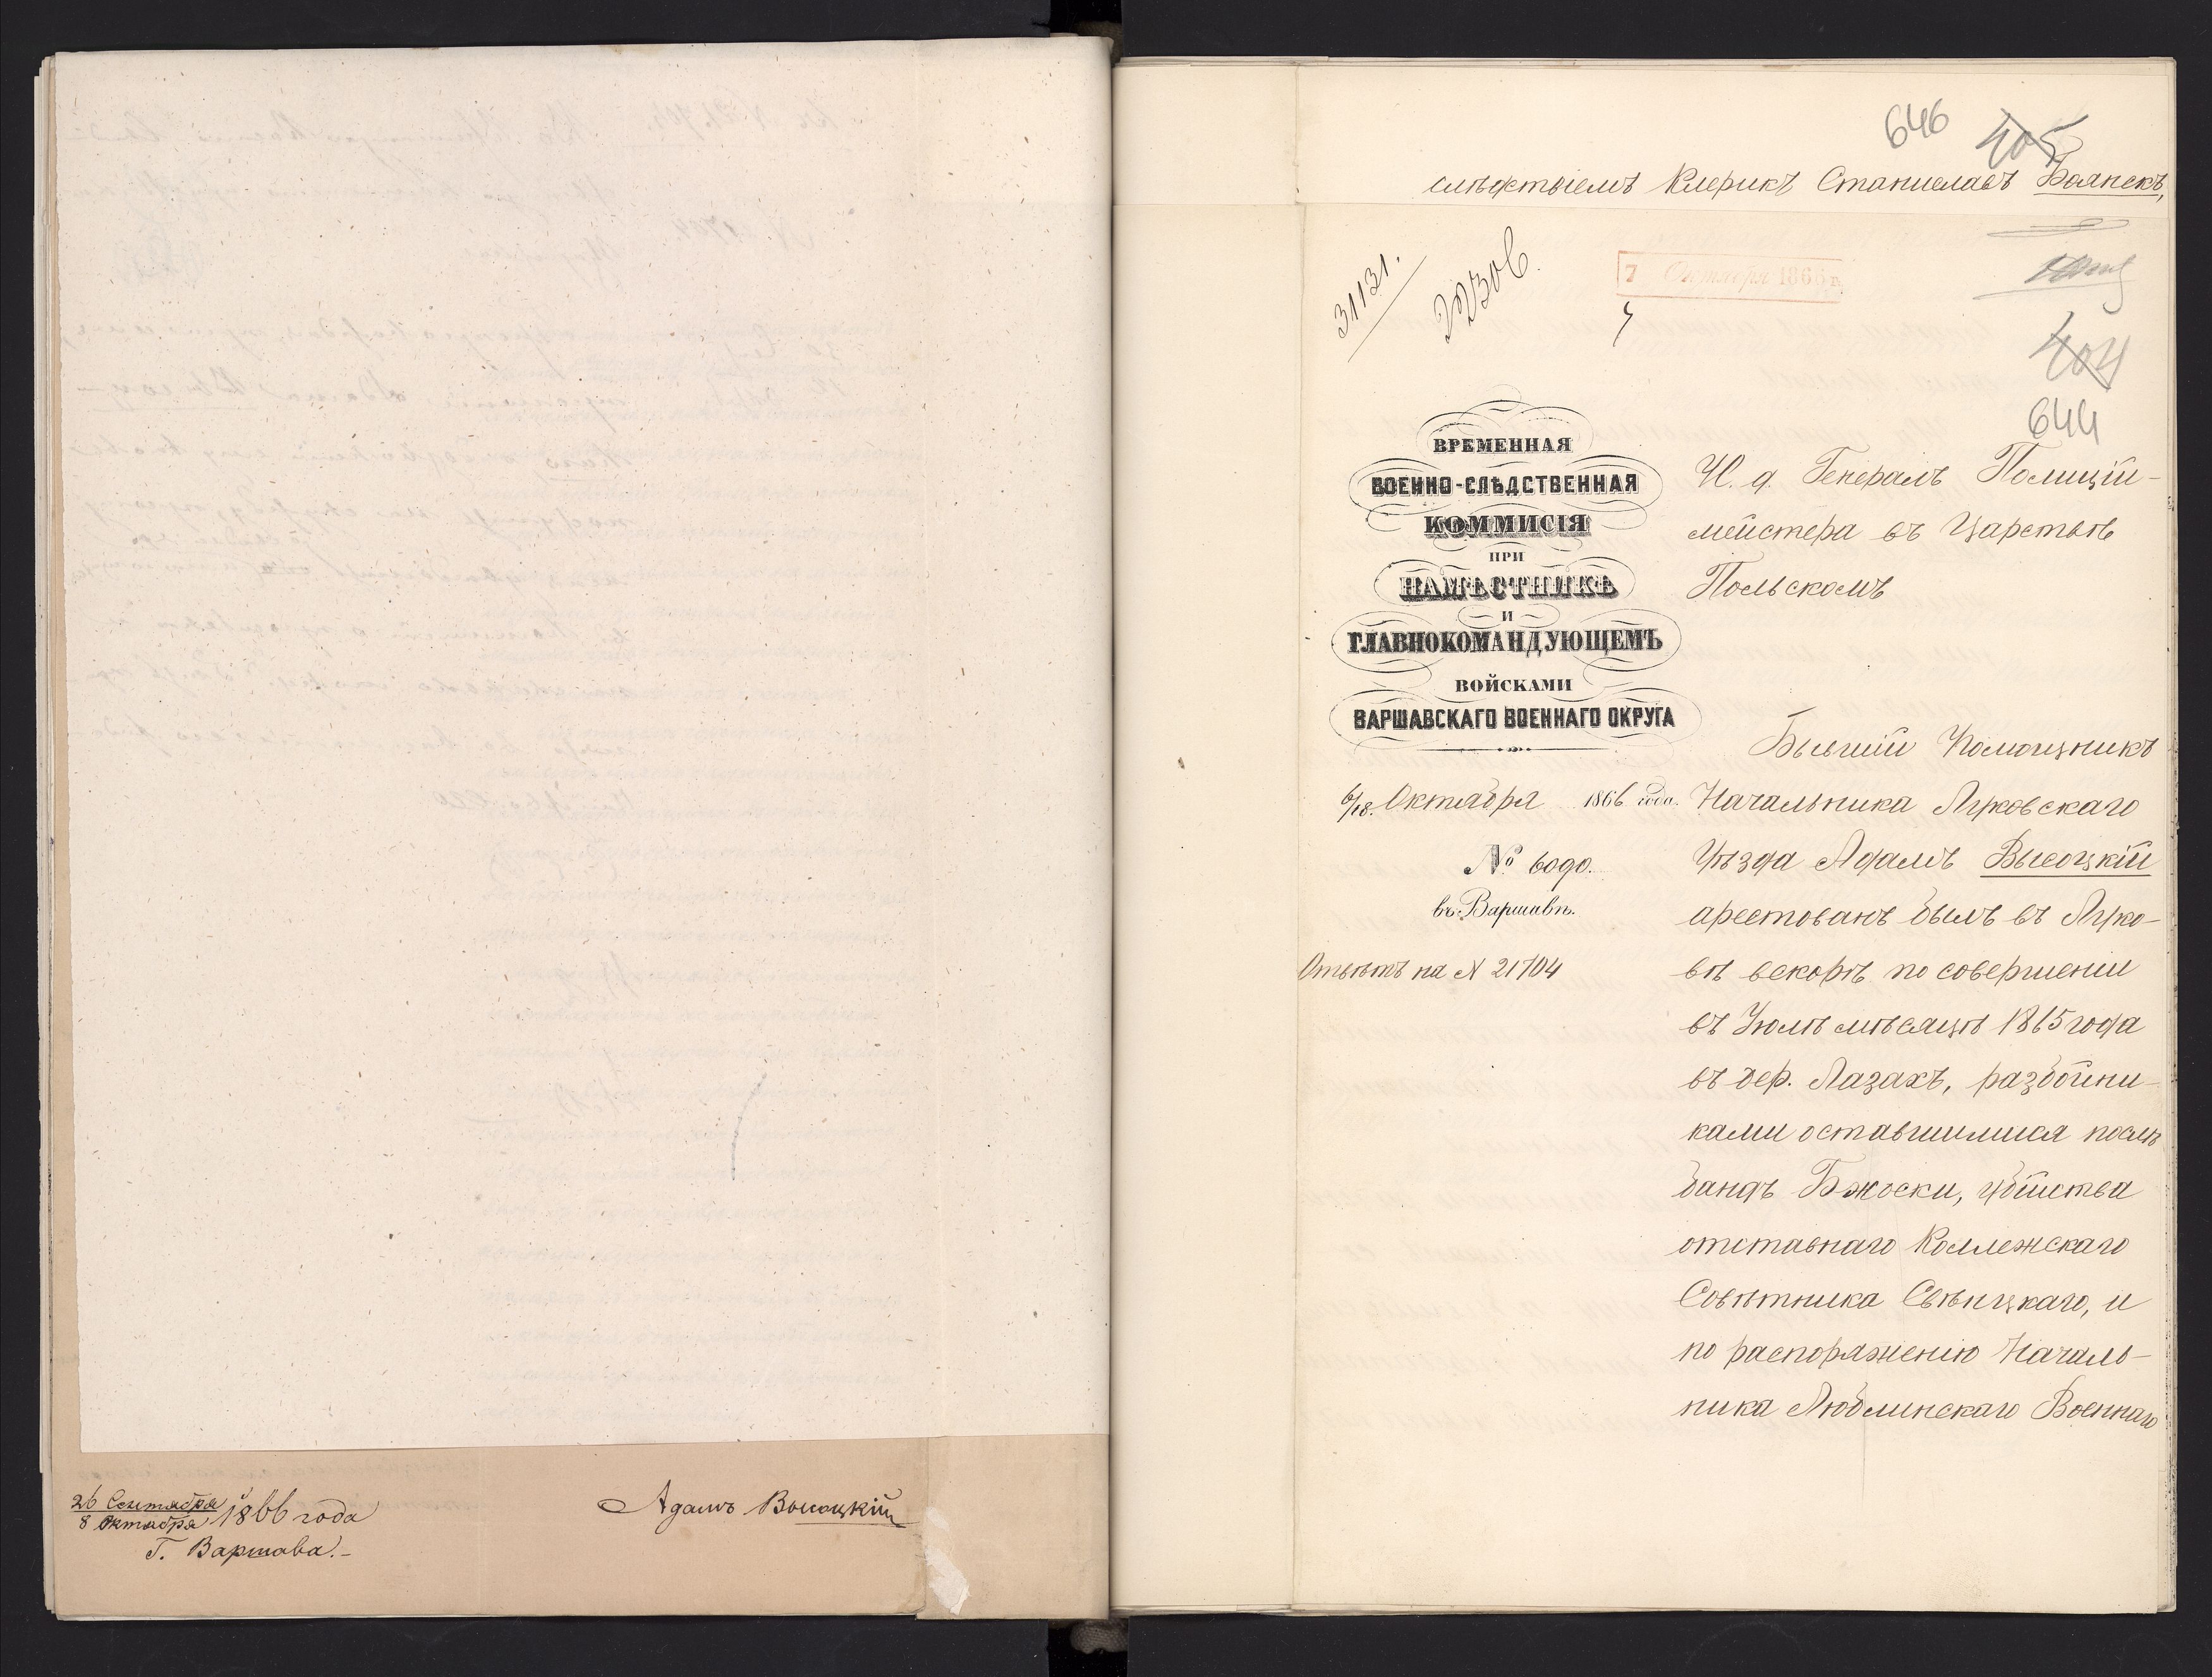 26 Сентября
8 Октября 1866 года
Г. Варшава.-
Адамъ Высоцкій
646
405
Клерикъ Станиславъ Боянекъ,
31131.
7 Октября 1866 г.
404
644
ВРЕМЕННАЯ
ВОЕННО-СЛѢДСТВЕННАЯ
КОММИСІЯ
ПРИ
НАМѢСТНИКѢ
И
ГЛАВНОКОМАНДУЮЩЕМЪ
ВОЙСКАМИ
ВАРШАВСКАГО ВОЕННАГО ОКРУГА
6/18. Октября 1866 года.
№ 6090.
въ Варшавѣ.
Отвѣтъ на N 21704
И. д. Генералъ Полиціи-
мейстера въ Царствѣ
Польскомъ
Бывшій Помощникъ
Начальника Луковскаго
Уѣзда Адамъ Высоцкій
арестованъ былъ въ Луко-
вѣ вскорѣ по совершеніи
въ Іюлѣ мѣсяцѣ 1865 года
въ дер. Лазахъ, разбойни-
ками оставшимися послѣ
бандъ Бжоски, убійства
отставнаго Коллежскаго
Совѣтника Свѣнцкаго, и
по распоряженію Началь-
ника Люблинскаго Военнаго